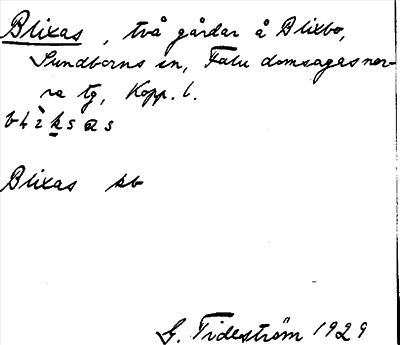 Blixas, två gårdar å Blixbo,
Sundborns sn, Falu domsagas nor-
ra tg, Kopp. l.
Blixas sb
G. Tideström 1929